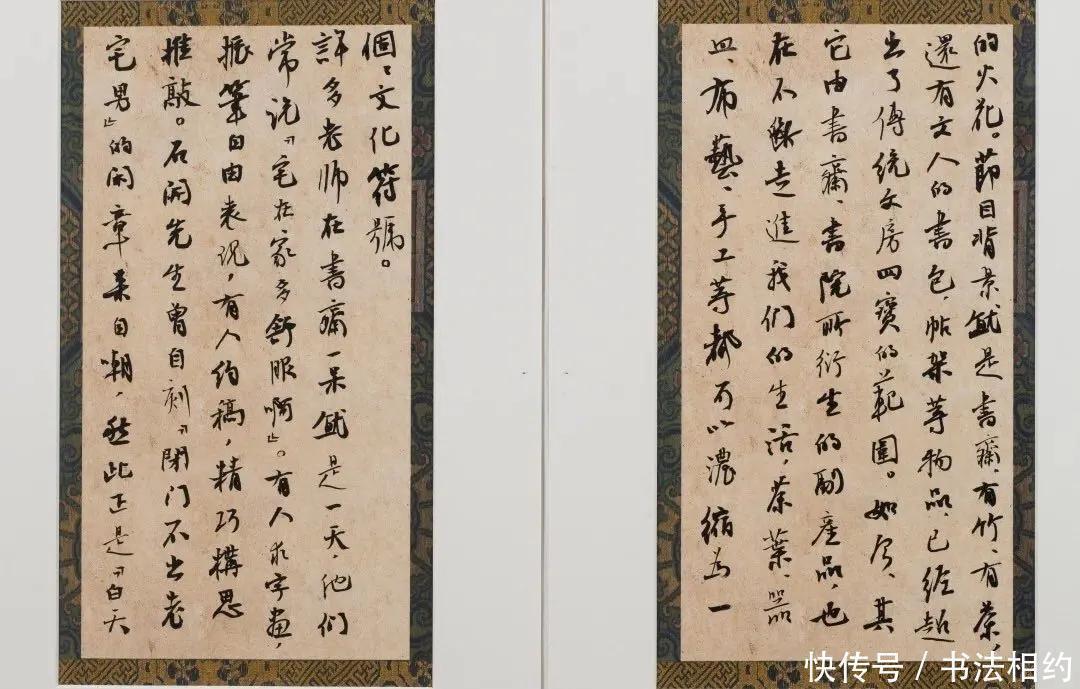 的火花。節目背景就是書齋，有竹、有茶，
還有文人的書包，帖架等物品，已經超
出了傳統文房四寶的範圍。如今，其
它由書齋、書院所衍生的副產品，也
在不斷走進我們的生活，茶葉、器
皿、布藝、手工等都可以濃縮為一
個個文化符號。
許多老師在書齋一呆就是一天，他们
常说「宅在家多舒服啊」。有人求字畫，
振筆自由表现，有人约稿，精巧構思
推敲。石開先生曾自刻「閉门不出老
宅男」的闲章来自嘲，然此正是「白天
快传号 / 书法相约